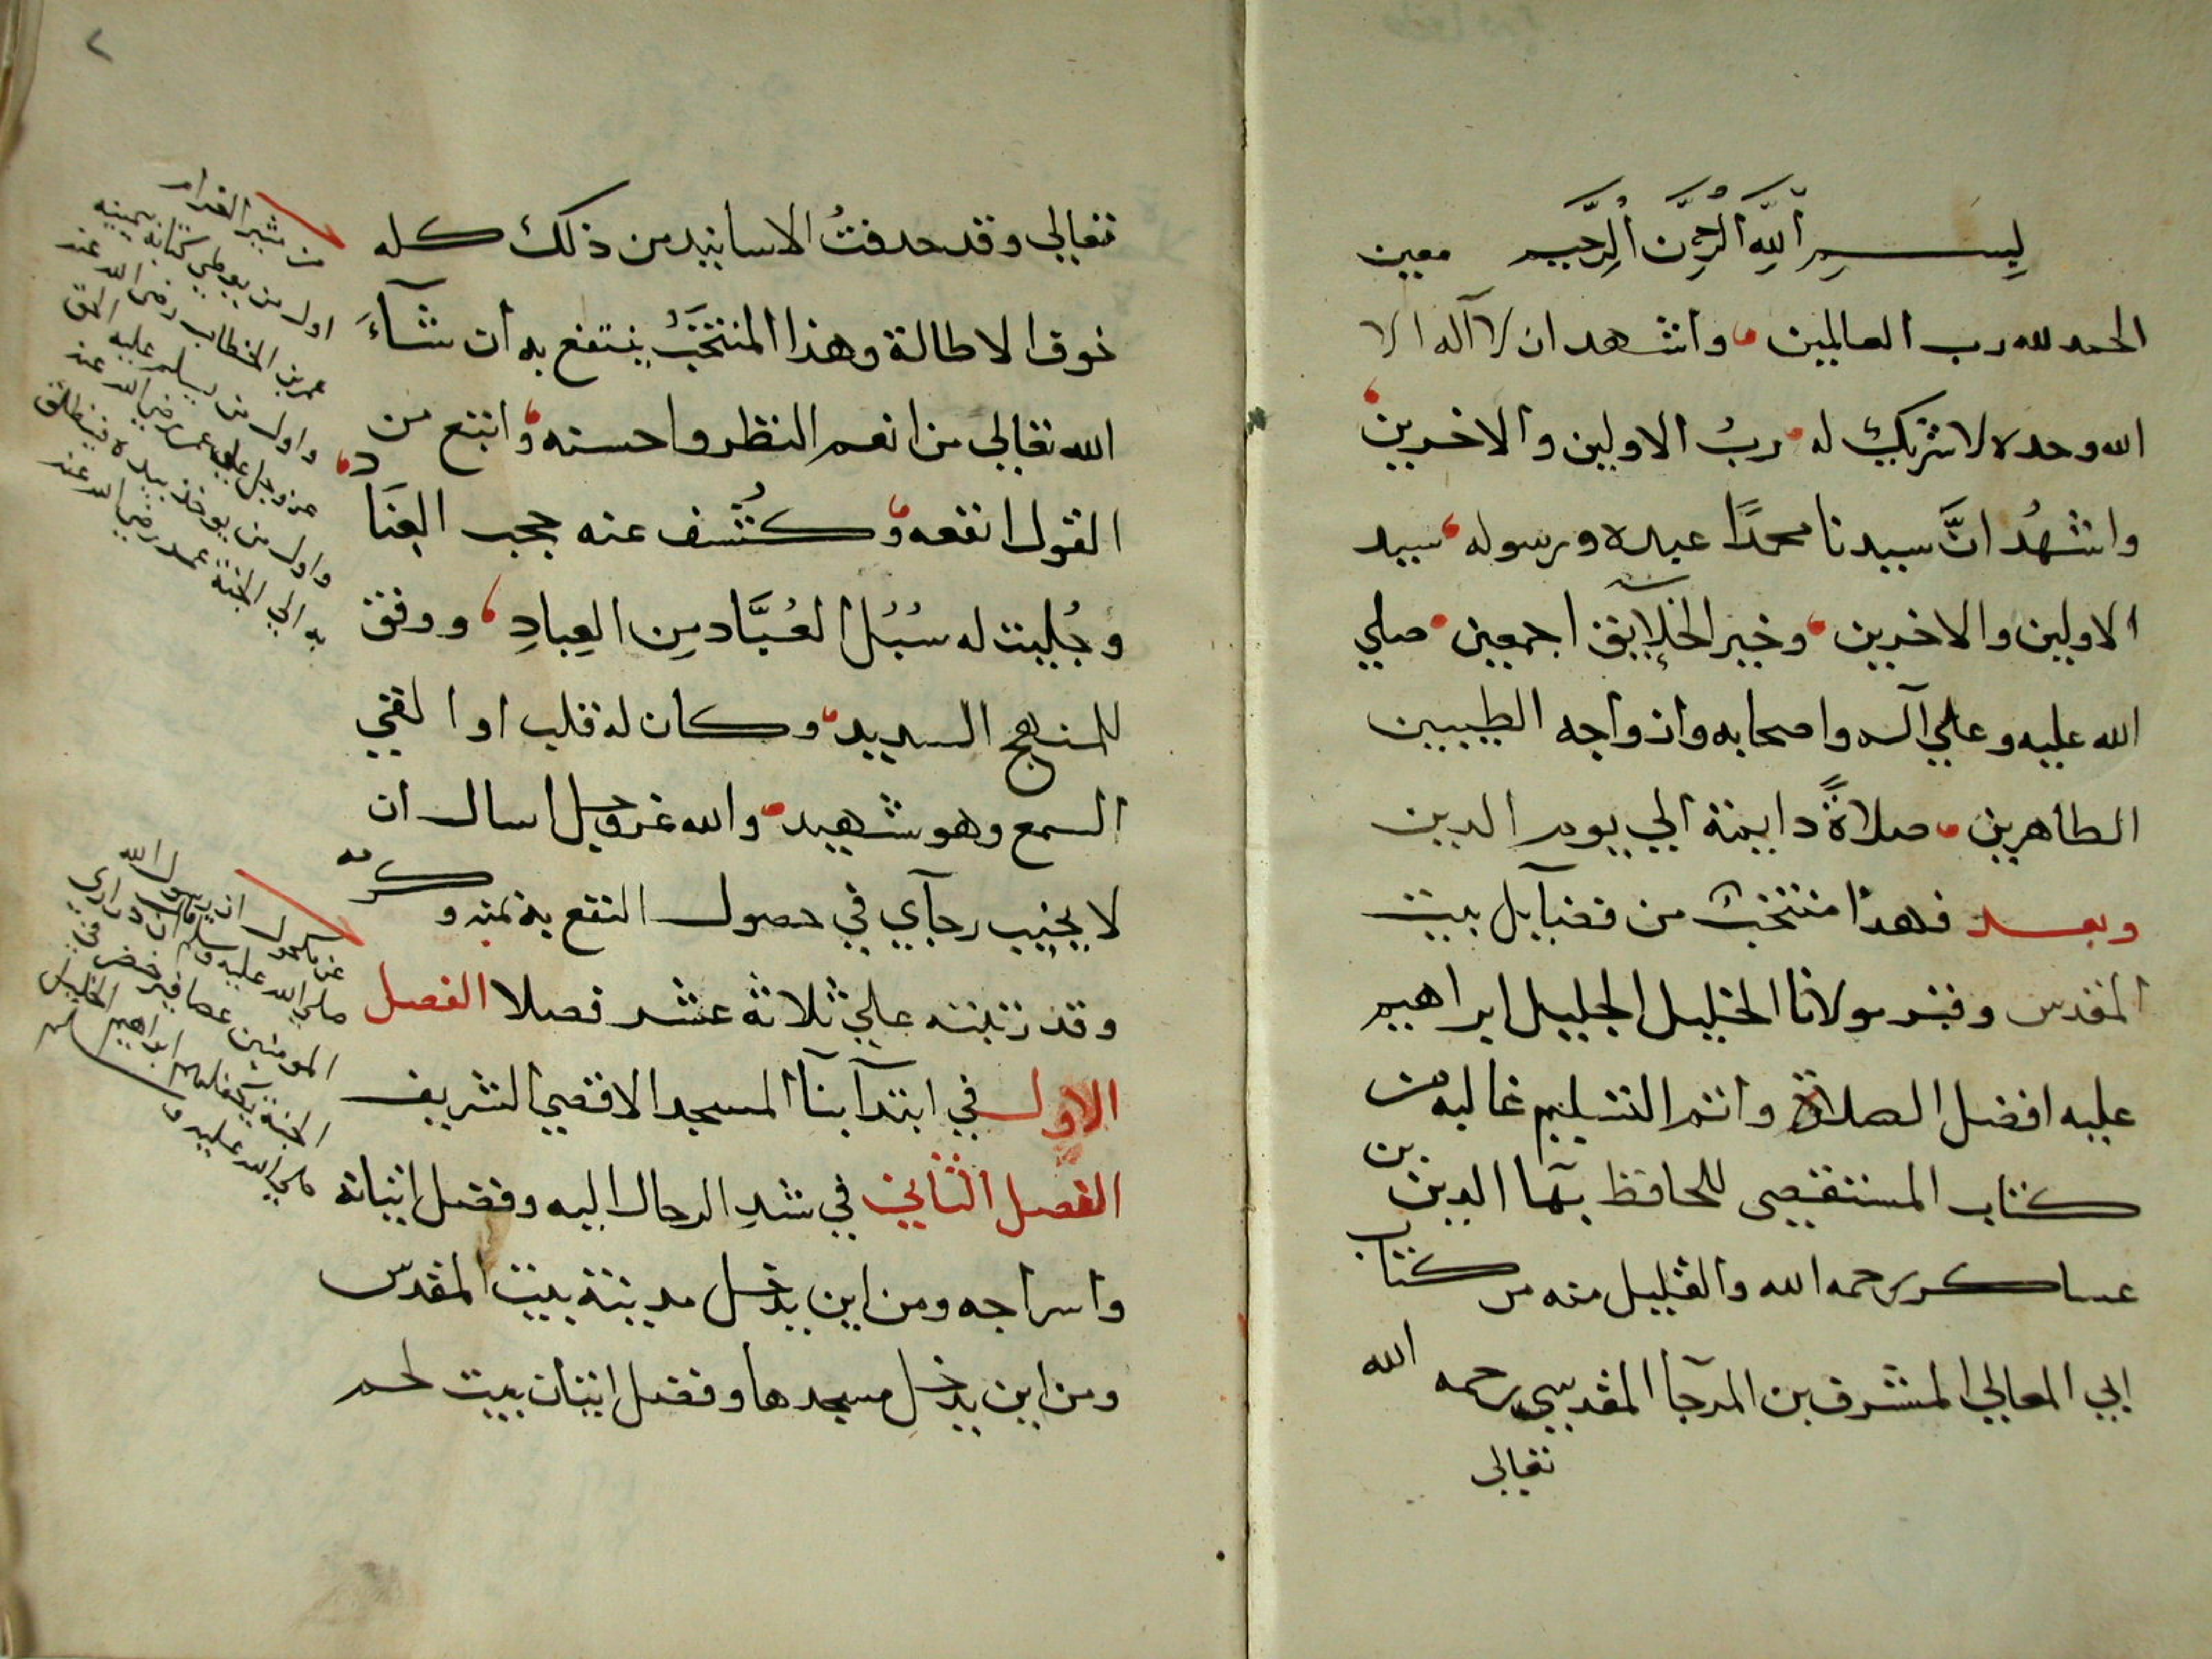 بِسمِ اللهِ الرَّحمٰنِ الرَّحيم معين
الحمد لله رب العالمين، واشهد ان لا آله الا
الله وحده لا شريك له، ربُ الاولين والاخرين،
واشهدُ انَّ سيدنا محمدًا عبده ورسوله، سيد
الاولين والاخرين، وخير الخلآيق اجمعين، صلي
الله عليه وعلي آله واصحابه وازواجه الطيبين
الطاهرين، صلاةً دايمة الي يوم الدين
وبعد فهذا منتخب من فضآيل بيت
المقدس وقبر مولانا الخليل الجليل ابراهيم
عليه افضل الصلاة واتم التسليم غالبه من
كتاب المستقصى للحافظ بهآ الدين بن
عساكر رحمه الله والقليل منه من كتاب
ابي المعالي المشرف بن المرجا المقدسي رحمه الله
تعالى
٢
تعالي وقد حدفتُ الاسانيد من ذلك كله
خوف الاطالة وهذا المنتخبُ ينتفع به ان شآءَ
الله تعالي من انعم النظر واحسنه، واتبع من
القول انفعه، وكُشف عنه حجب العِنَاد،
وجُليت له سُبُل العُبَّاد مِن العِبادِ، ووفق
للمنهج السديد، وكان له قلب او القي
السمع وهو شهيد، والله عز وجل اسال ان
لا يخيب رجآي في حصول النفع به بمنه وكرمه
وقد رتبته علي ثلاثة عشر فصلا الفصل
الاول في ابتدآ بنآ المسجد الاقصي الشريف
الفصل الثاني في شد الرحال اليه وفضل اتيانه
واسراجه ومن اين يدخل مدينة بيت المقدس
ومن اين يدخل مسجدها وفضل اتيان بيت لحم
اول من يعطي كتابه بيمينه
عمر بن الخطاب رضي الله عنه
واول من يسلم عليه الحق
عز وجل عمر رضي الله عنه
واول من يوخذ بيده فينطلق
به الي الجنة عمر رضي الله عنه
عن مكحول ان رسول الله
صلي الله عليه وسلم قال ان دراري
المومنين عصافير خضر في
الجنة يكفلهم ابراهيم الخليل
صلي الله عليه وسلم